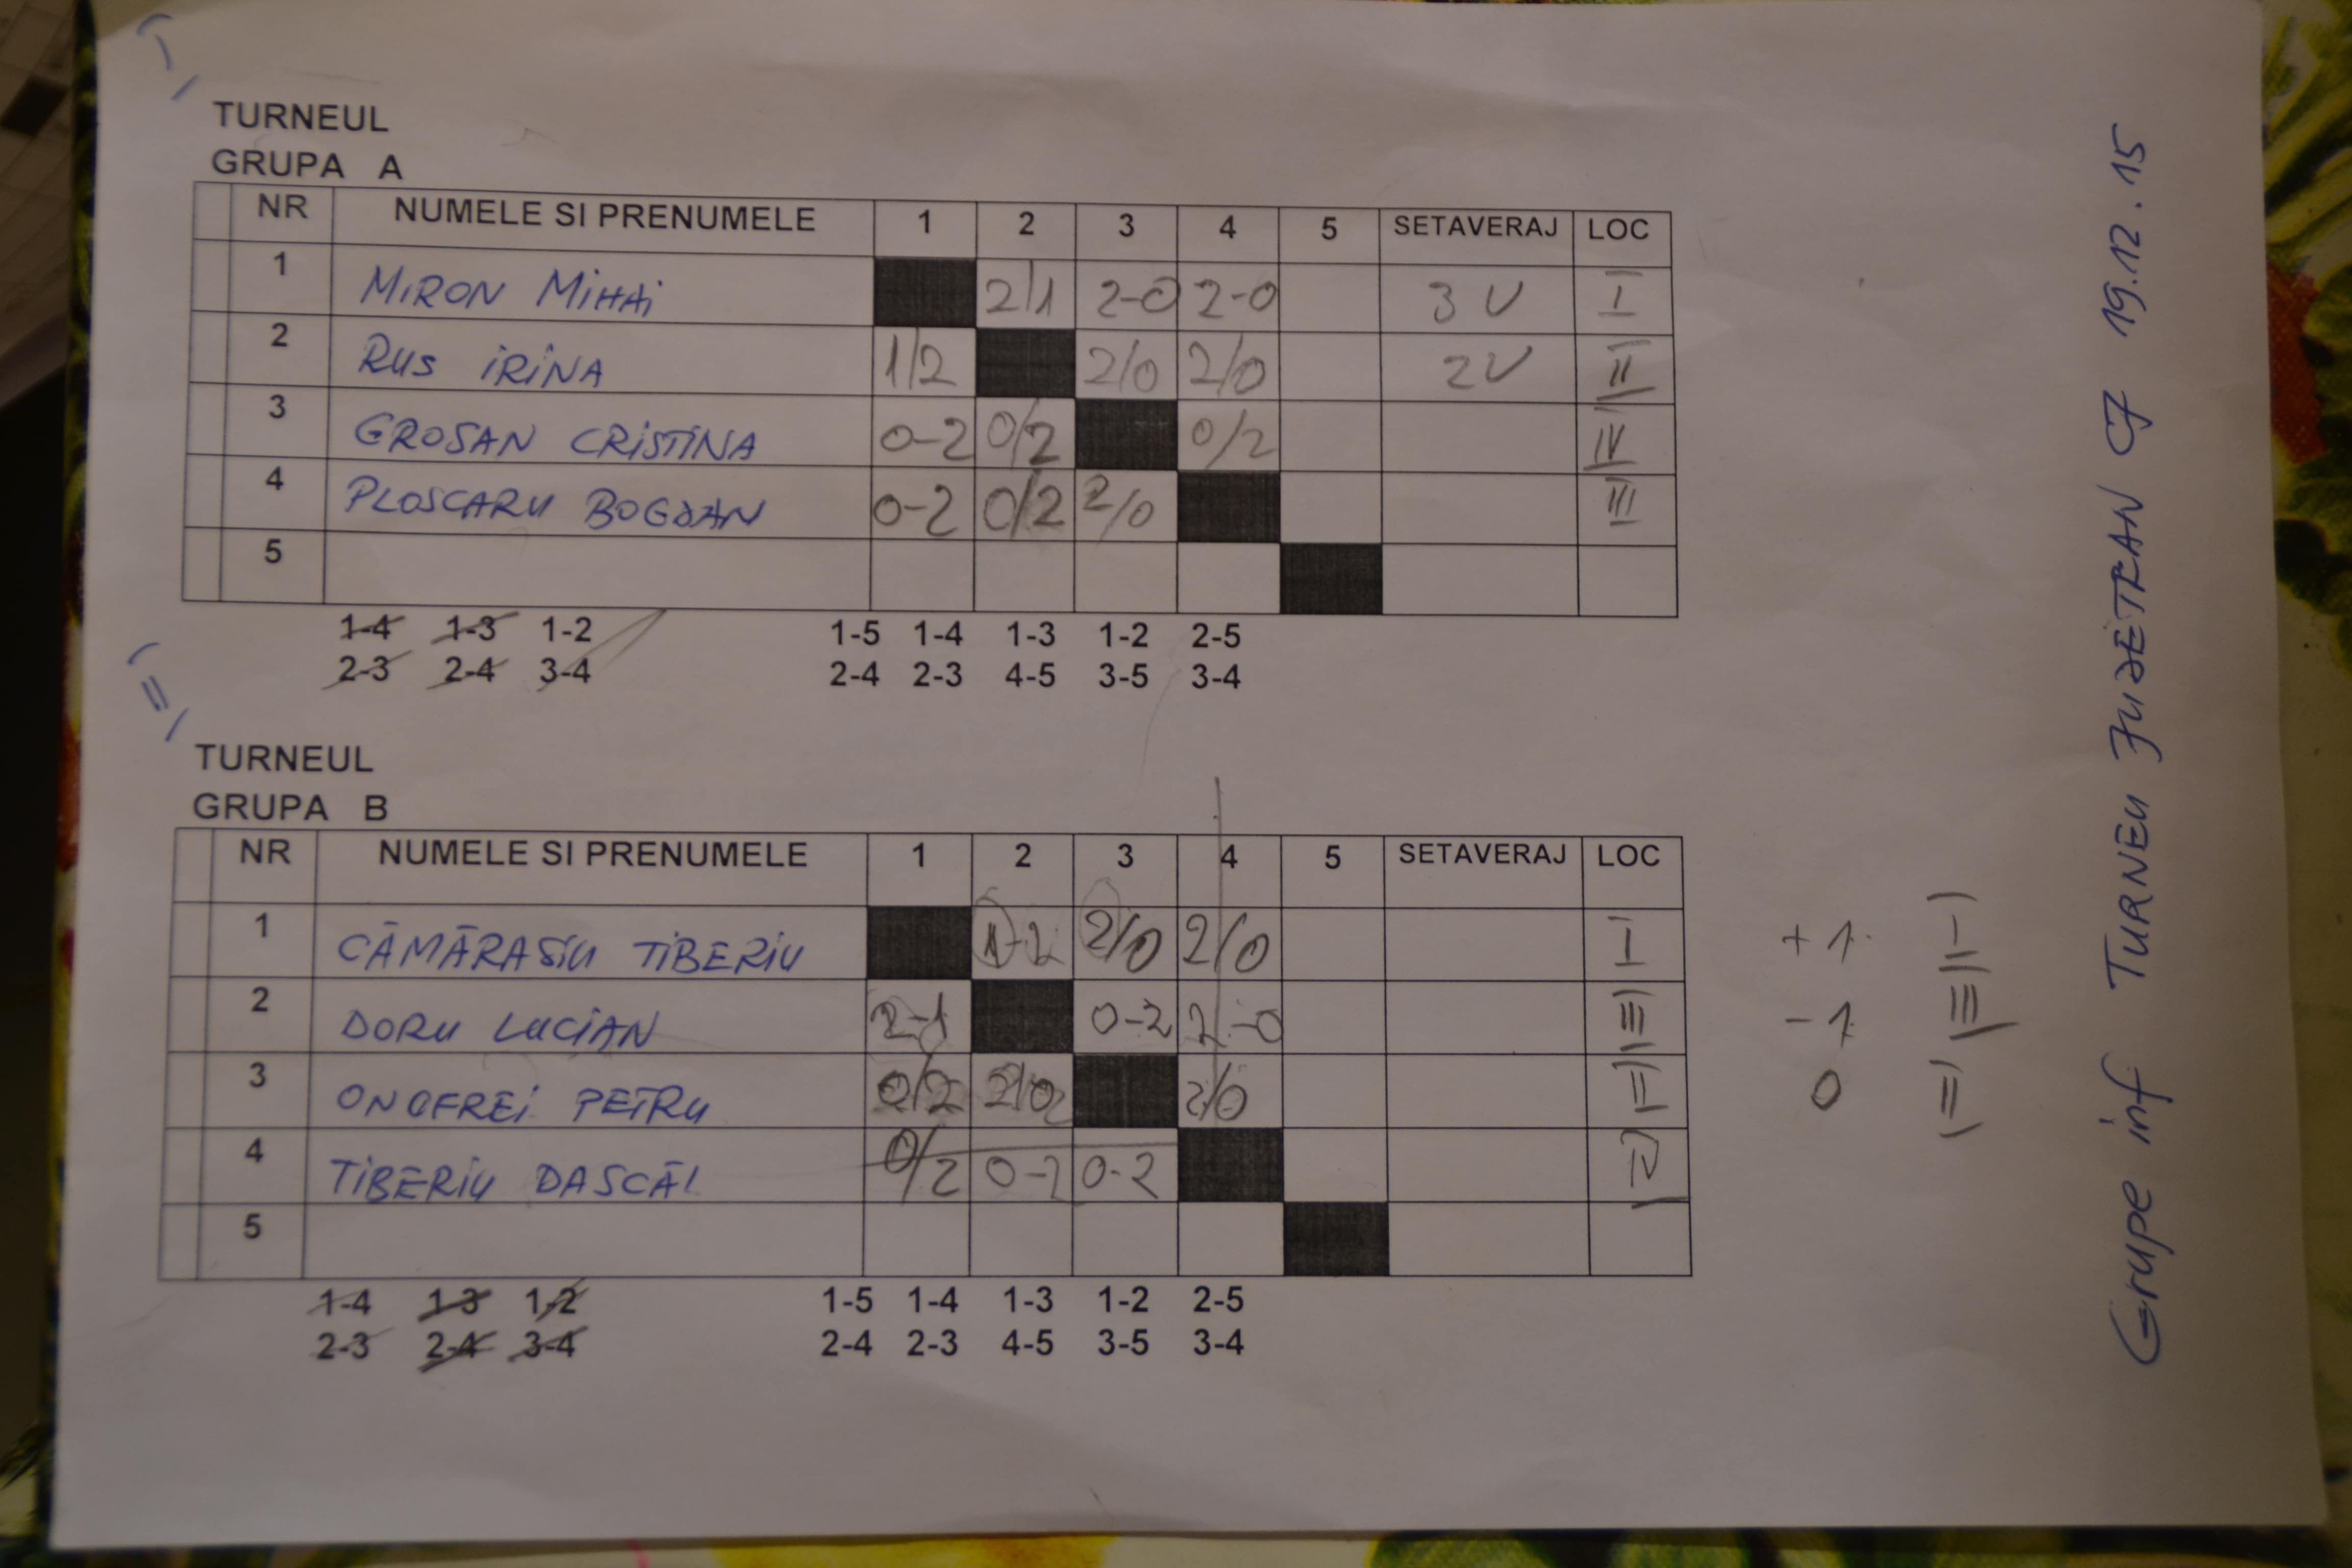 I
TURNEUL
GRUPA A
NR NUMELE SI PRENUMELE 1 2 3 4 5 SETAVERAJ LOC
1 MIRON MIHAI 2/1 2-0 2-0 3V I
2 RUS IRINA 1/2 2/0 2/0 2V II
3 GROSAN CRISTINA 0-2 0/2 0/2 IV
4 PLOSCARU BOGDAN 0-2 0/2 2/0 III
5
1-4 1-3 1-2 1-5 1-4 1-3 1-2 2-5
2-3 2-4 3-4 2-4 2-3 4-5 3-5 3-4
II
TURNEUL
GRUPA B
NR NUMELE SI PRENUMELE 1 2 3 4 5 SETAVERAJ LOC
1 CĂMĂRASIU TIBERIU 1-2 2/0 2/0 I +1 I
2 DORU LUCIAN 2-1 0-2 2-0 III -1 III
3 ONOFREI PETRU 0/2 2/0 2/0 II 0 II
4 TIBERIU DASCĂL 0/2 0-2 0-2 IV
5
1-4 1-3 1-2 1-5 1-4 1-3 1-2 2-5
2-3 2-4 3-4 2-4 2-3 4-5 3-5 3-4
Grupe inf TURNEU JUDETEAN CJ 19.12.15